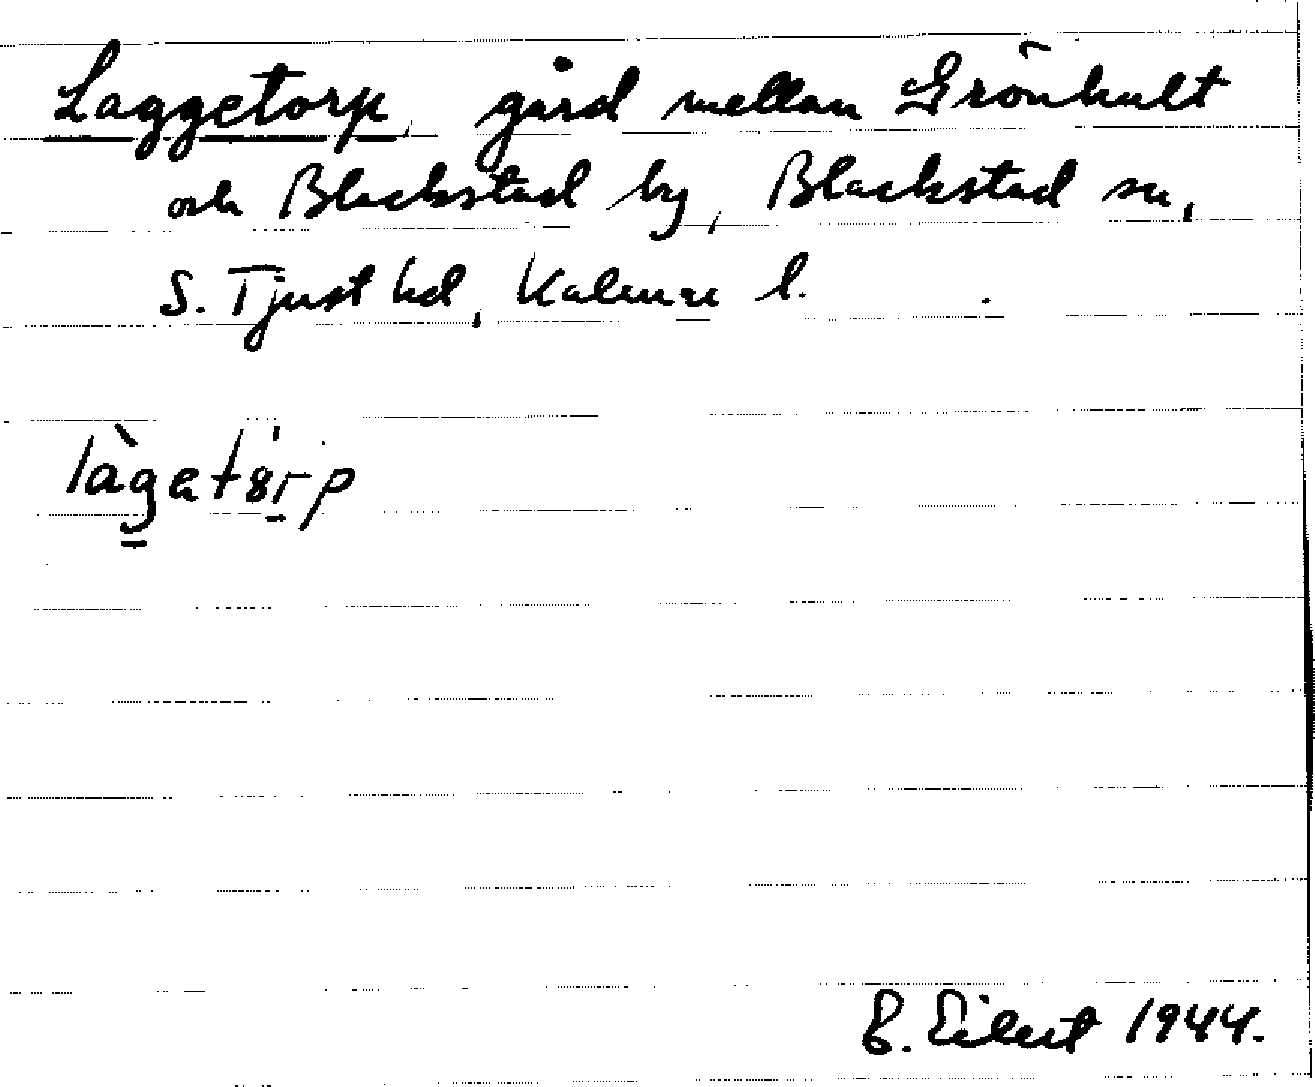 Laggetorp, gård mellan Grönhult
och Blackstad by, Blackstad sn,
S. Tjust hd, Kalmar l.
làgetórp
1944.